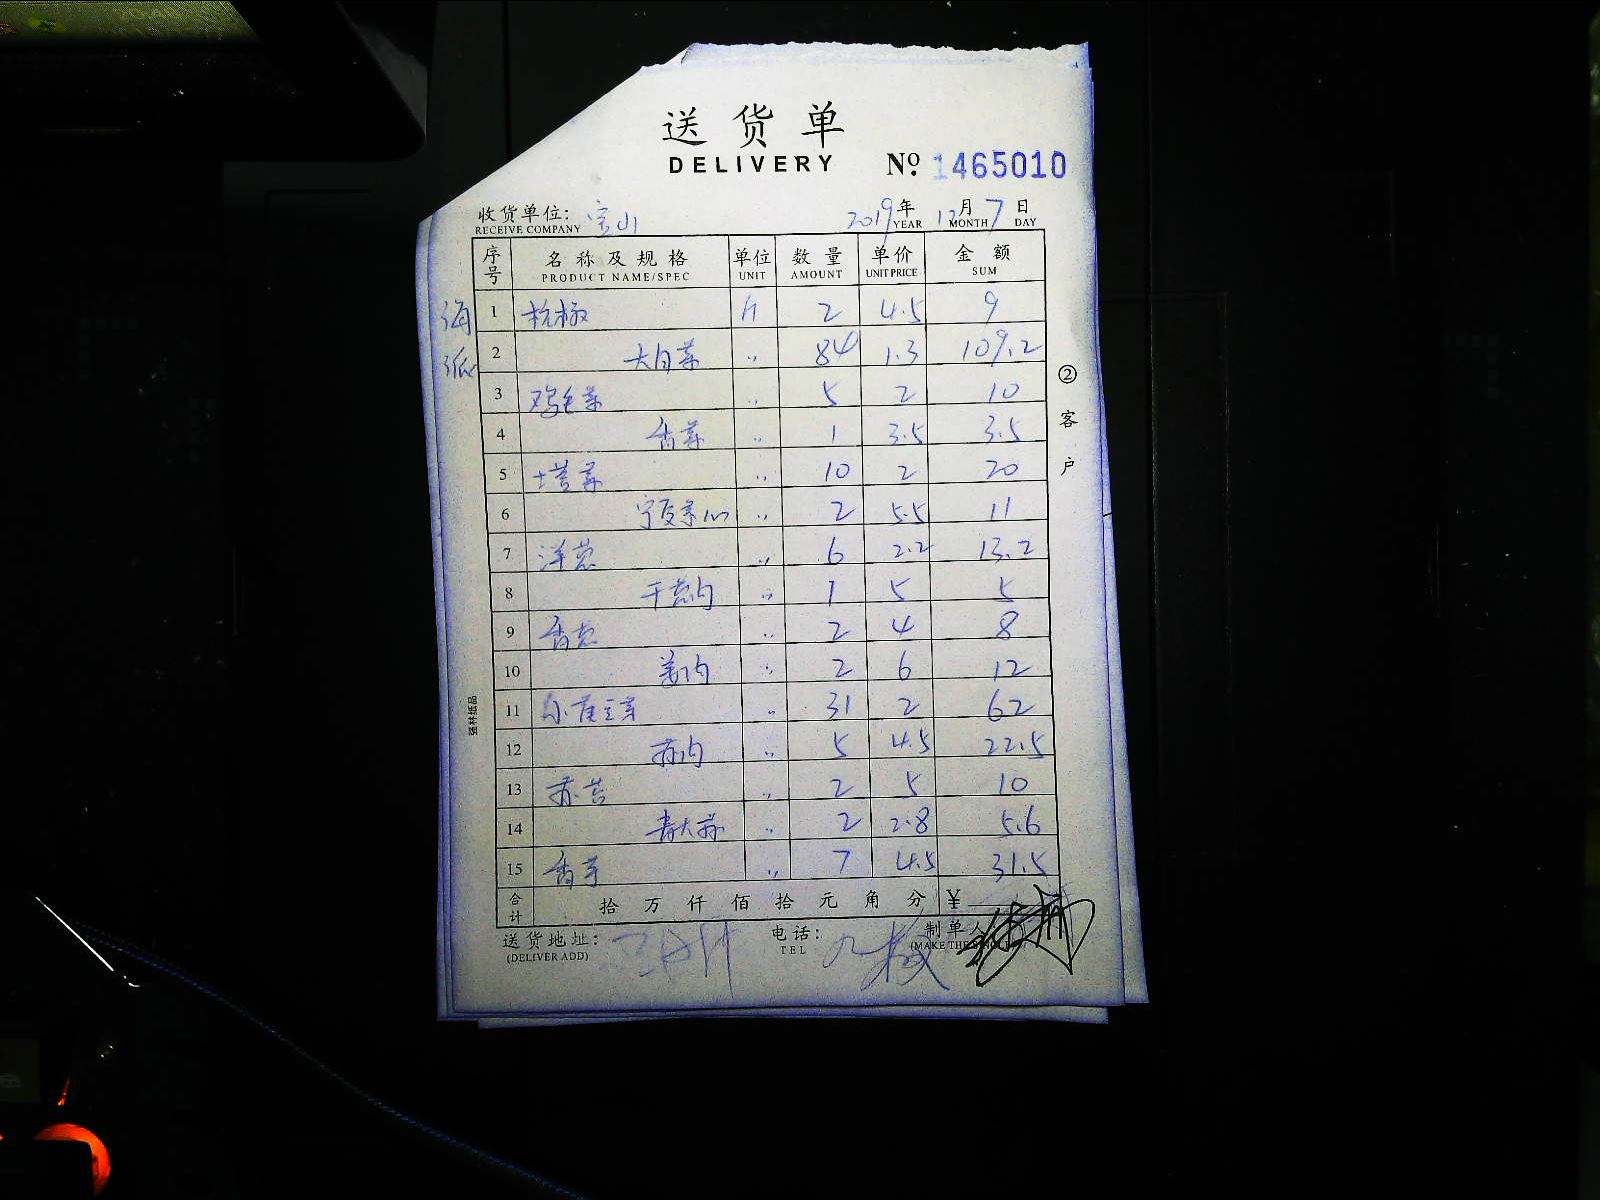 送货单
DELIVERY
№ 1465010
收货单位: 宝山 2019年 12月 7日
RECEIVE COMPANY YEAR MONTH DAY
序号 名称及规格 单位 数量 单价 金额
PRODUCT NAME/SPEC UNIT AMOUNT UNIT PRICE SUM
海
1 杭椒 斤 2 4.5 9
2 大白菜 〃 84 1.3 109.2
3 鸡毛菜 〃 5 2 10
4 香菜 〃 1 3.5 3.5
5 塔菜 〃 10 2 20
6 宁夏菜心 〃 2 5.5 11
7 洋葱 〃 6 2.2 13.2
8 干葱肉 〃 1 5 5
9 香葱 〃 2 4 8
10 姜肉 〃 2 6 12
11 豆芽 〃 31 2 62
12 蒜肉 〃 5 4.5 22.5
13 〃 2 5 10
14 青大蒜 〃 2 2.8 5.6
15 香芋 〃 7 4.5 31.5
合计 拾 万 仟 佰 拾 元 角 分 ¥
送货地址: 电话: 制单人
(DELIVER ADD) TEL
②客户
强林纸品